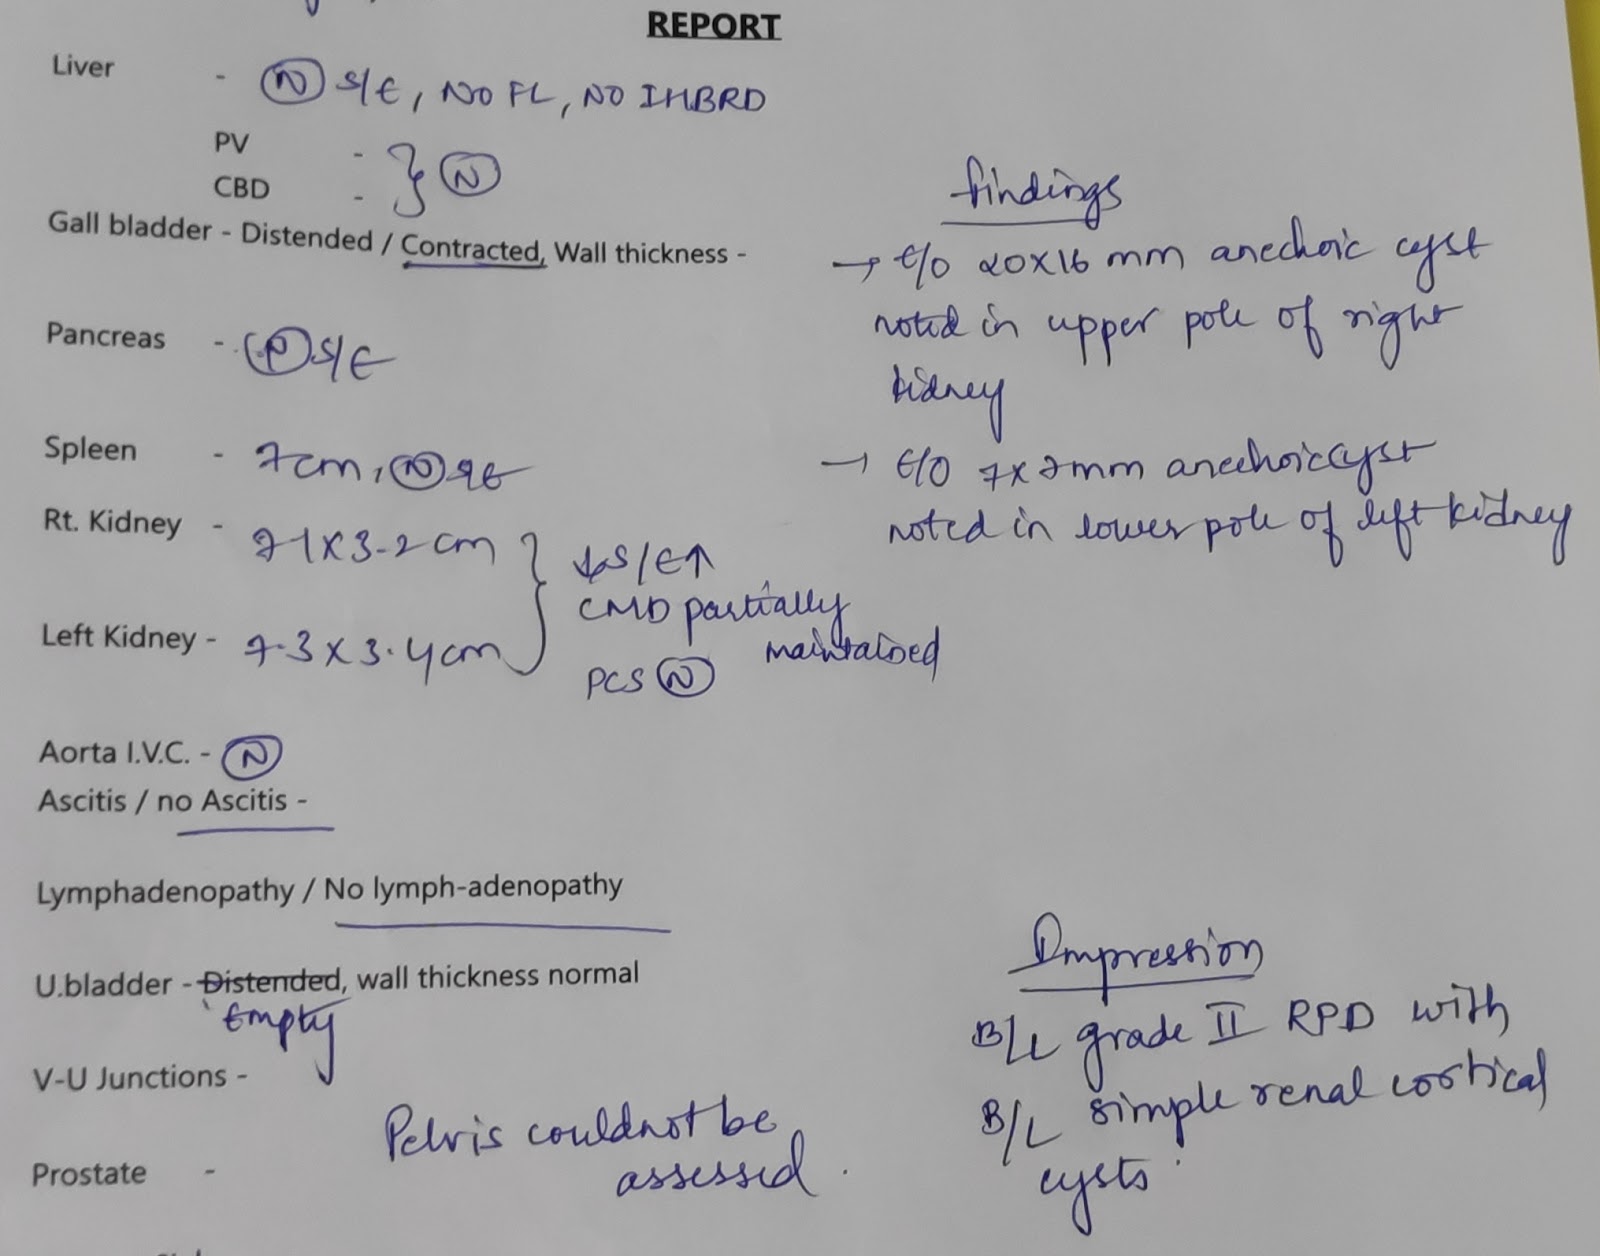 REPORT
Liver - (N) S/E, NO FL, NO IHBRD
PV -
CBD - } (N)
Gall bladder - Distended / Contracted, Wall thickness -
Pancreas - S/E
Spleen - 7cm, (N)
Rt. Kidney - 7.1 X 3.2 cm
Left Kidney - 7.3 X 3.4 cm
S/E↑
CMD partially
maintained
PCS (N)
Aorta I.V.C. - (N)
Ascitis / no Ascitis -
Lymphadenopathy / No lymph-adenopathy
U.bladder - Distended, wall thickness normal
Empty
V-U Junctions -
Prostate -
Pelvis couldnot be
assessed.
findings
→ E/O 20X16 mm anechoic cyst
noted in upper pole of right
kidney
→ E/O 7x7mm anechoic cyst
noted in lower pole of left kidney
Impression
B/L grade II RPD with
B/L simple renal cortical
cysts.